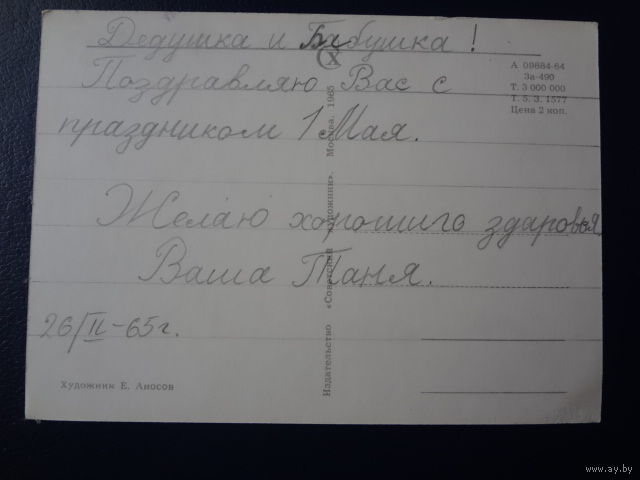 Дедушка и Бабушка!
Поздравляю Вас с
праздником 1 Мая.
Желаю хорошиго здаровья
Ваша Таня.
26/II-65г.
А 09884-64
За-490
Т. 3 000 000
Т. 5. З. 1577
Цена 2 коп.
Издательство «Советский художник». Москва. 1965
СХ
Художник Е. Аносов
www.ay.by